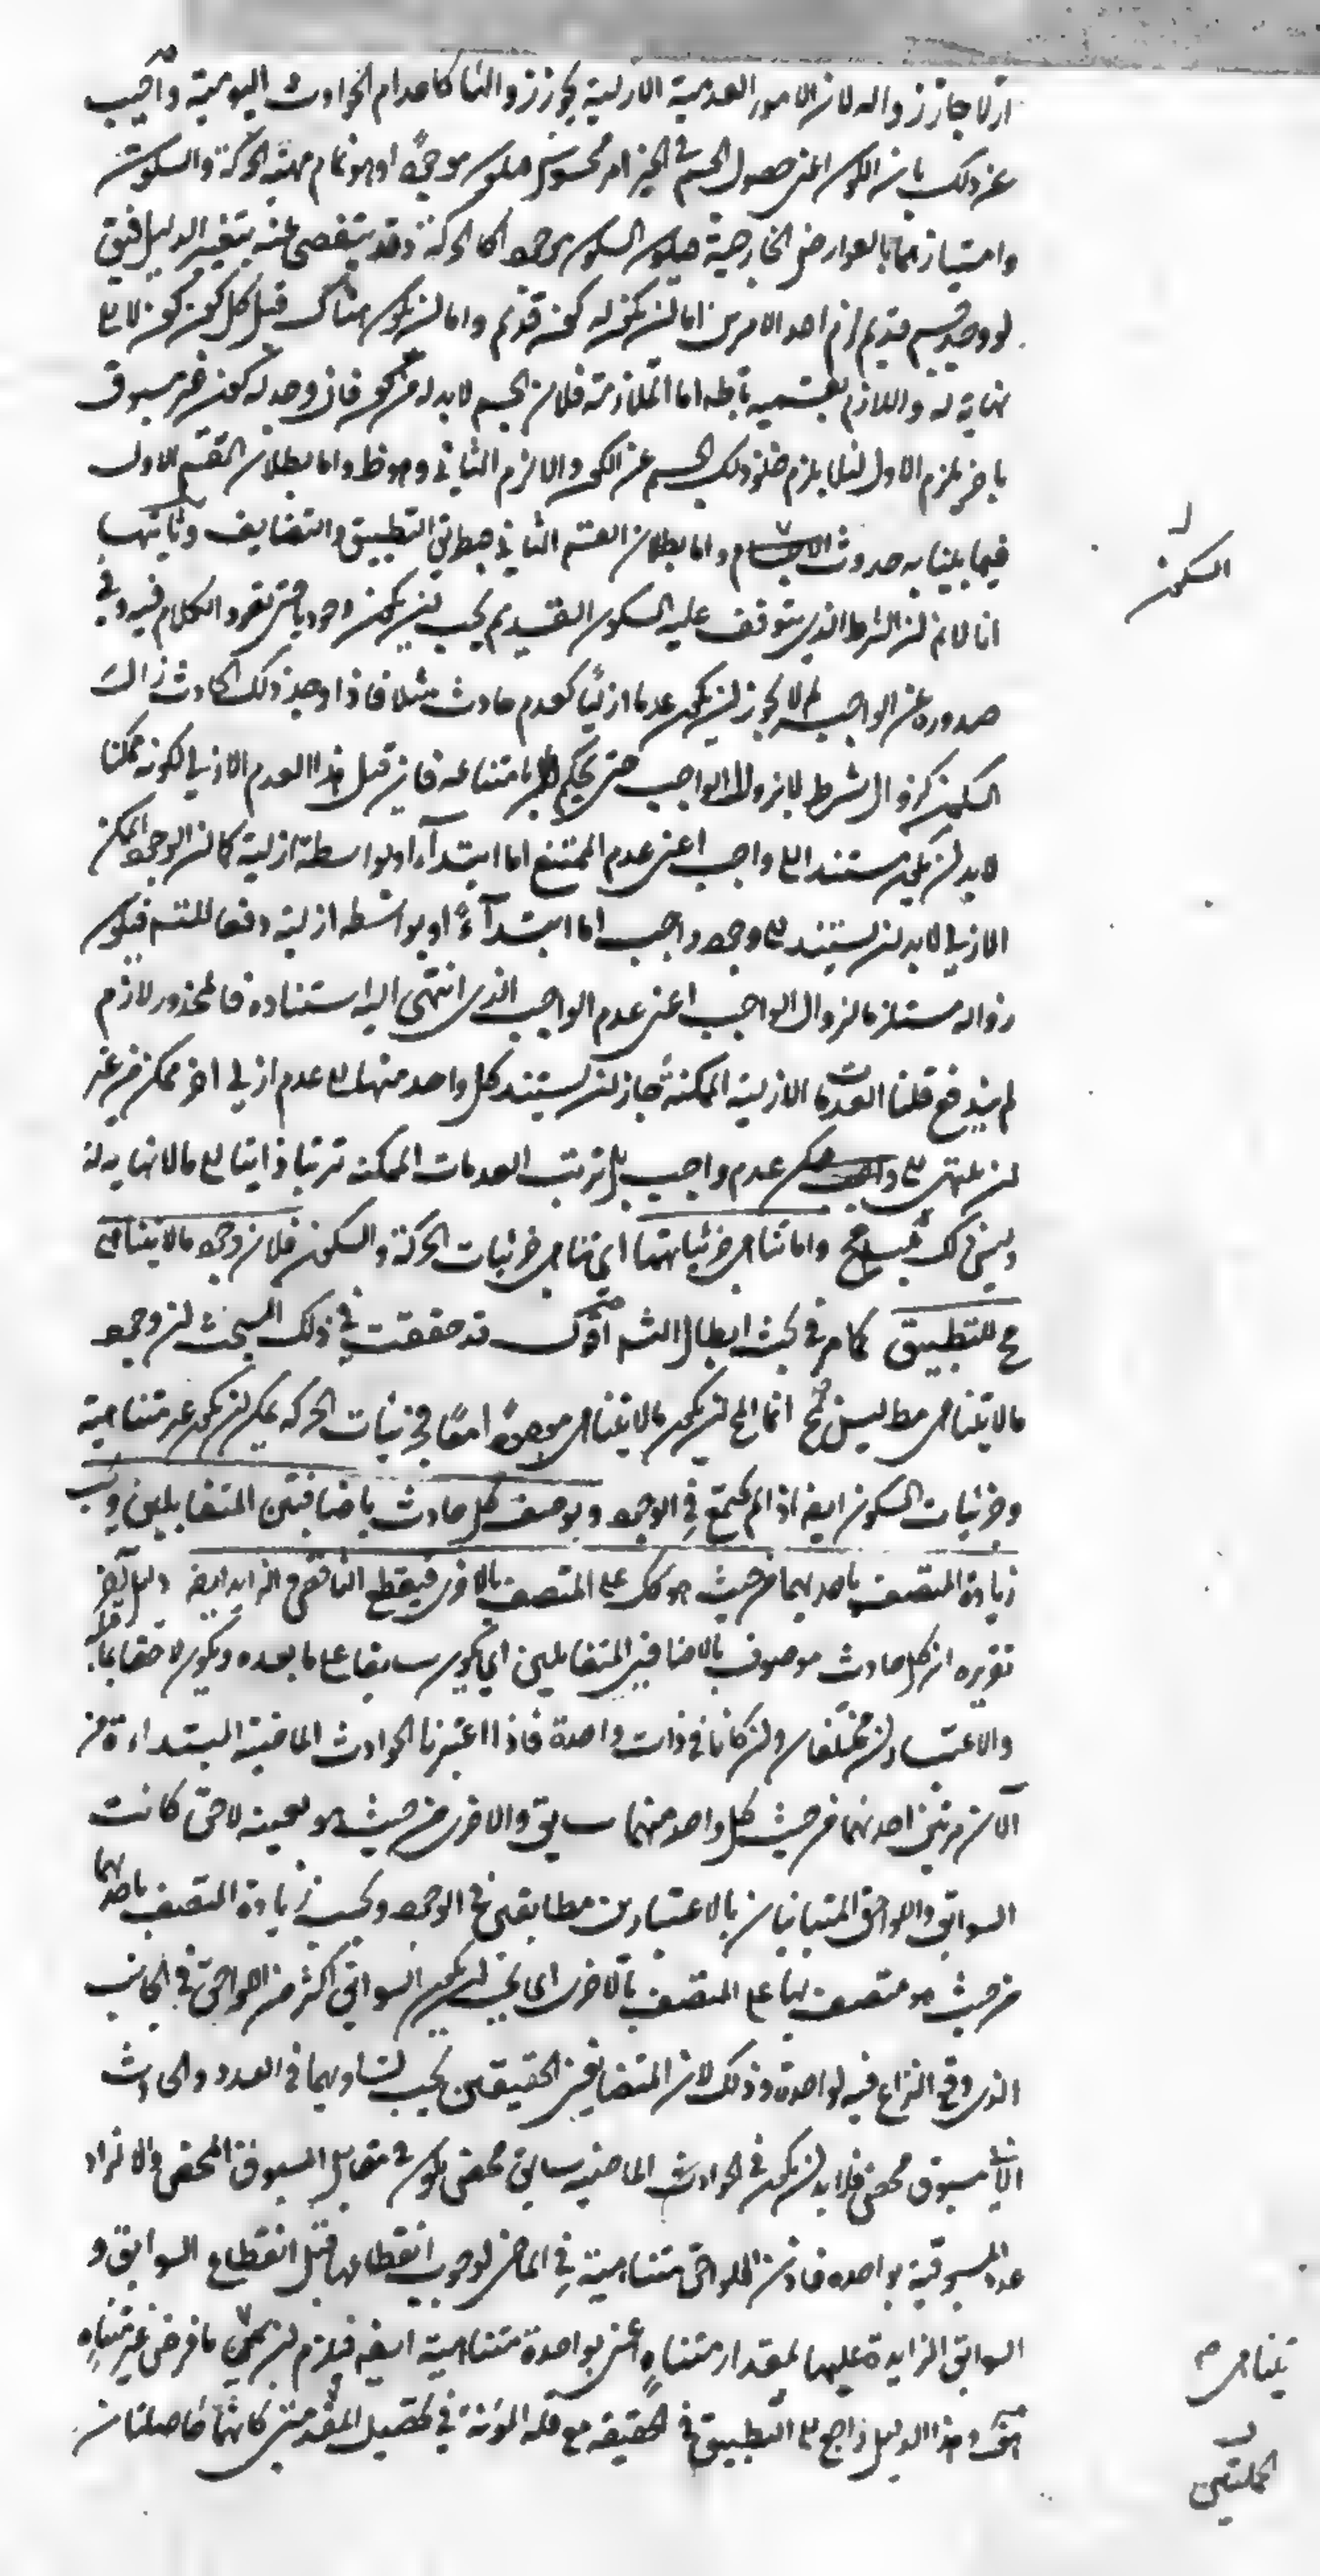 ازلا جاز زواله لان الامور العدمية الازلية يجوز زوالها كاعدام الحوادث اليومية واجيب
عن ذلك بان الكون اعنى حصول الجسم في الحيز امر محسوس فيكون موجودا وهو تمام مهية الحركة والسكون
وامتيازهما بالعوارض الخارجية فيكون السكون موجودا كالحركة وقد يتفصى عنه بتغيير الدليل فيق
لو وجد جسم قديم لزم احد الامرين اما لن يكون له كون قديم واما لن يكون هناك قبل كل كون كون لا الى
نهاية له واللازم بقسميه باطله اما الملازمة فلان الجسم لابد له من كون فان وجد له كون غير مسبوق
باخر يلزم الاول لئلا يلزم خلو ذلك الجسم عن الكون والا لزم الثاني وهو ظ واما بطلان القسم الاول
فبما بينا به حدوث الاجسام واما بطلان القسم الثاني فبطريق التطبيق والتضايف وثانيهما
انا لانم لن الشرط الذي يتوقف عليه السكون القديم يجب لن يكون وجوديا حتى نعود الكلام فيه وفي
صدوره عن الواجب لم لا يجوز لن يكون عدما ازليا كعدم حادث مثلا فاذا وجد ذلك الحادث زال
السكون لزوال شرطه لا لزوال الواجب حتى يحكم بامتناعه فان قيل هذا العدم الازلي لكونه ممكنا
لابد لن يكون مستندا الى واجب اعنى عدم الممتنع اما ابتداء او بواسطة ازلية كما لن الوجود الممكن
الازلي لابد لن يستند الى وجود واجب اما ابتداء او بواسطه ازلية دفعا للتسم فيكون
زواله مستلزما لزوال الواجب اعنى عدم الواجب الذي انتهى اليه استناده فالمحذور لازم
لم يندفع قلنا العدمات الازلية الممكنة جاز لن يستند كل واحد منها الى عدم ازلي اخر ممكن من غير
لن ينتهى الى عدم واجب بل ترتب العدمات الممكنه ترتبا ذاتيا الى مالا نهايه له
وليس ذلك بمح واما تناهى جزئياتهما اي تناهى جزئيات الحركة والسكون فلان وجود مالا يتناهى
مح للتطبيق كما مر في بحث ابطال التسم اقول قد حققت في ذلك المبحث لن وجود
مالا يتناهى مطلقا ليس بمح انما المح لن يكون مالا يتناهى موجودا معا فجزئيات الحركه يمكن لن يكون غير متناهية
وجزئيات السكون ايضا اذا لم يجتمع في الوجود ويوصف كل حادث باضافتين المتقابلين ويجب
زيادة المتصف باحديهما من حيث هو كك على المتصف بالاخرى فينقطع الناقص والزايد ايضا دليل اخر
تقريره ان كل حادث موصوف بالاضافتين المتقابلين اي يكون سابقا على ما بعده ويكون لاحقا بما قبله
والاعتبارن مختلفان ولن كانا في ذات واحدة فاذا اعتبرنا الحوادث الماضية المبتداءة من
الآن مرتين احديهما من حيث كل واحد منهما سابق والاخرى من حيث هو بعينه لاحق كانت
السوابق واللواحق المتباينان بالاعتبارين مطابقين في الوجود ويجب زيادة المتصف باحديهما
من حيث هو متصف بها على المتصف بالاخرى اي يجب لن يكون السوابق اكثر من اللواحق في الجانب
الذي وقع النزاع فيه لواحدة وذلك لان المتضايفين الحقيقين يجب تساويهما في العدد والحادث
الآن مسبوق محض فلابد لن يكون في الحوادث الماضيه سابق محض يكون في مقابل المسبوق المحض والا لزاد
عدد المسبوقية بواحدة فاذن اللواحق متناهية في الماضى لوجوب انقطاعها قبل انقطاع السوابق و
السوابق الزايدة عليها لمقدار متناه اعنى بواحدة متناهية ايضا فيلزم لن يكون ما فرض غير متناه
هف وهذا الدليل راجع الى التطبيق في الحقيقة مع قلة المؤنة في تحصيل المقدمتين كانهما حاصلتان
السكون
يتناهى
الجملتين